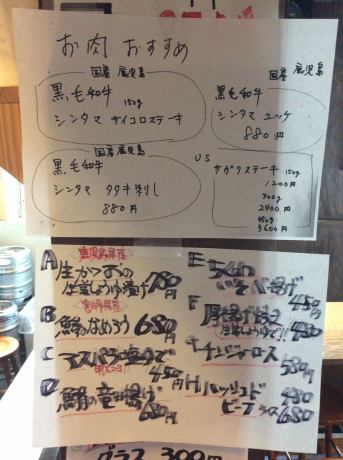 お肉 おすすめ
国産 鹿児島
黒毛和牛 150g
シンタマ サイコロステーキ
国産 鹿児島
黒毛和牛
シンタマ ユッケ
880円
国産 鹿児島
黒毛和牛
シンタマ タタキ刺し
880円
US
サガリステーキ 150g
1200円
300g
2400円
450g
3600円
A 鹿児島県産
生かつおの
780円
B
鯵のなめろう 680円
C アスパラ塩ゆで
450円
D
鯖の竜田揚げ
680円
E ちくわ
いそべ揚げ
450円
F 厚揚げ焼き
生姜じょうゆで!!
480
チーズ
580円
H ハッシュド
ビーフ
480
ライス 680
グラス 300円